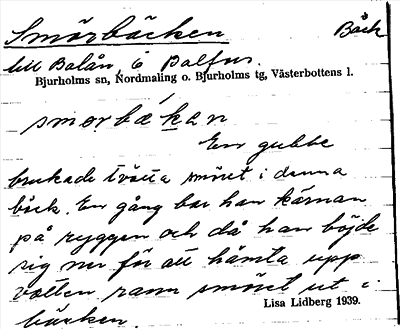 Smörbäcken Bäck
till Balån ö Balfors.
Bjurholms sn, Nordmaling o. Bjurholms tg, Västerbottens l.
smǫrbǽkan
En gubbe
brukade tvätta smöret i denna
bäck. En gång bar han kärnan
på ryggen och då han böjde
sig ner för att hämta upp
vatten rann smöret ut i
bäcken.
Lisa Lidberg 1939.